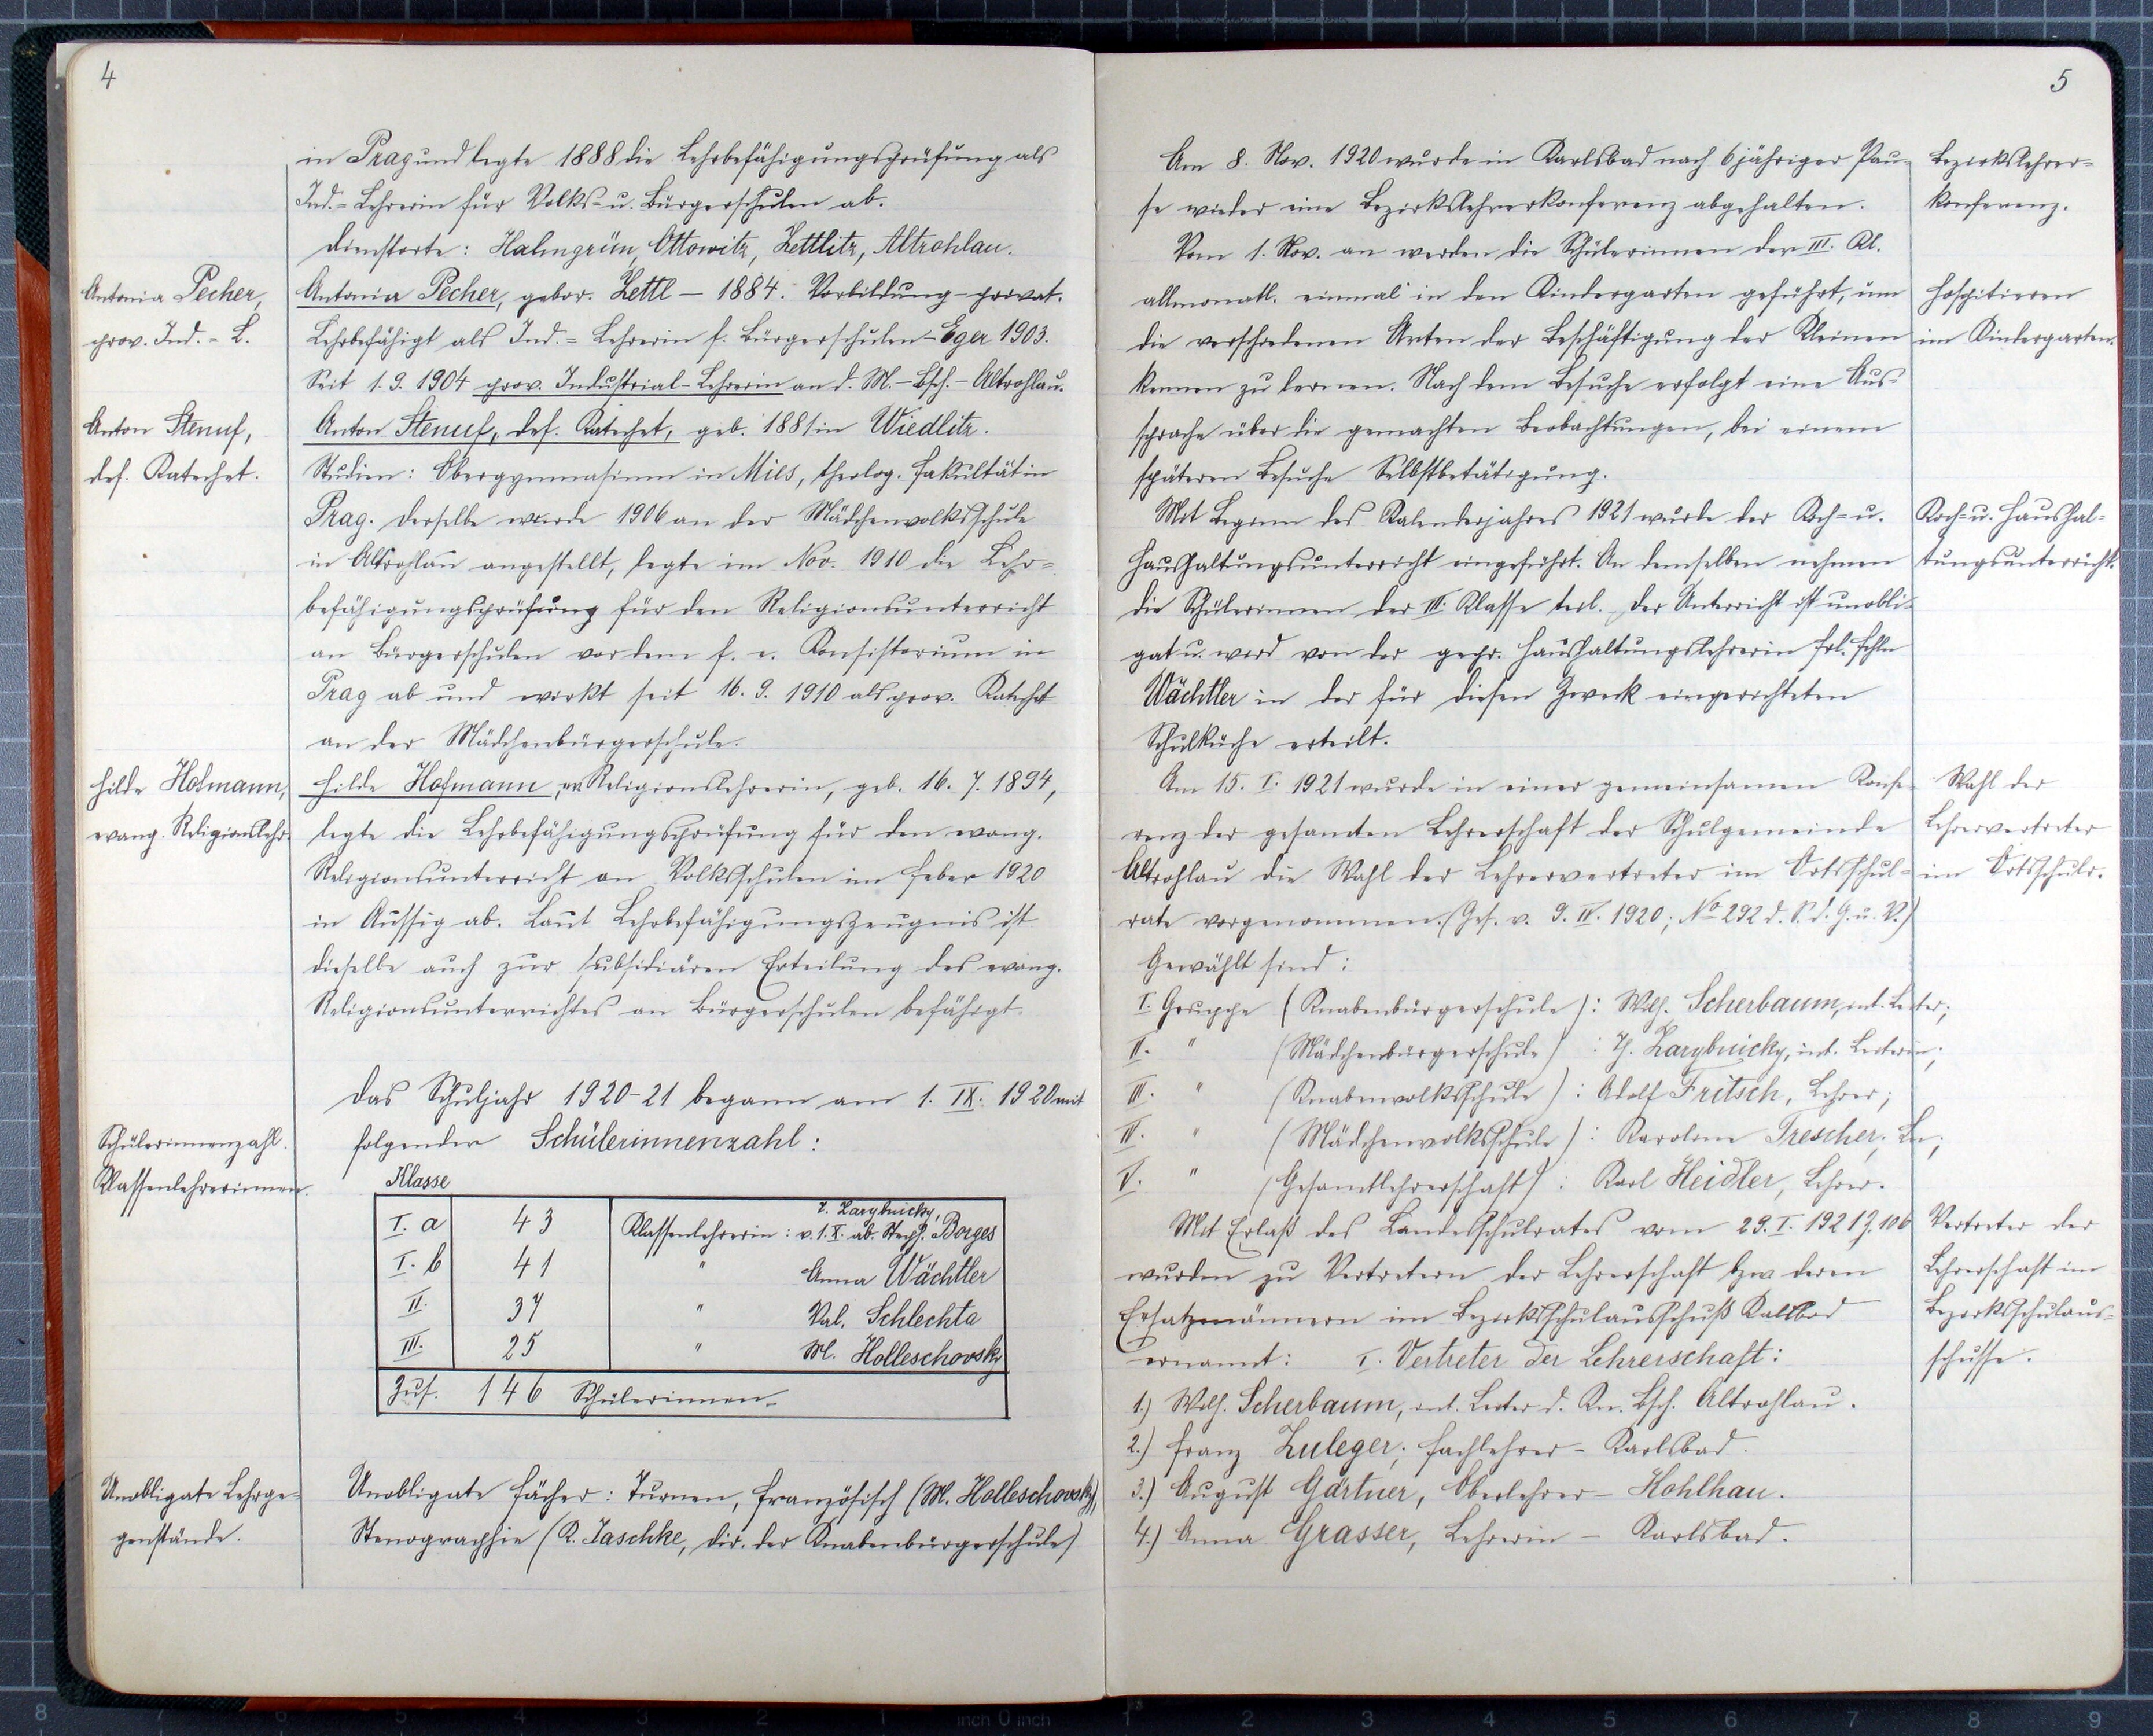 4
in Prag und legte 1888 die Lehrbefähigungsprüfung als
Ind.-Lehrerin für Volks- u. Bürgerschulen ab.
Dienstorte: Halmgrün, Ottowitz, Zettlitz, Altrohlau.
Antonia Pecher,
prov. Ind.-L.
Antonia Pecher, gebor. Zettl – 1884. Vorbildung – privat.
Lehrbefähigt als Ind.-Lehrerin f. Bürgerschulen – Eger 1903.
Seit 1.9.1904 prov. Industrial-Lehrerin an d. M.-Bsch. – Altrohlau.
Anton Stenuf,
def. Katechet.
Anton Stenuf, def. Katechet, geb. 1881 in Wiedlitz.
Studien: Obergymnasium in Mies, theolog. Fakultät in
Prag. Derselbe wurde 1906 an der Mädchenvolksschule
in Altrohlau angestellt, legte im Nov. 1910 die Lehr-
befähigungsprüfung für den Religionsunterricht
an Bürgerschulen vor dem f. e. Konsistorium in
Prag ab und wirkt seit 16.9.1910 als prov. Katechet
an der Mädchenbürgerschule.
Hilde Hofmann,
evang. Religionslehr.
Hilde Hofmann, ev. Religionslehrerin, geb. 16.7.1894,
legte die Lehrbefähigungsprüfung für den evang.
Religionsunterricht an Volksschulen im Feber 1920
in Aussig ab. Laut Lehrbefähigungszeugnis ist
dieselbe auch zur subsidiären Erteilung des evang.
Religionsunterrichtes an Bürgerschulen befähigt.
Das Schuljahr 1920-21 begann am 1. IX. 1920 mit
folgender Schülerinnenzahl:
Schülerinnenzahl.
Klassenlehrerinnen.
Klasse
I. a 43 Klassenlehrerin: Z. Zarybnicky, v. 1. X. ab. Steph. Borges
I. b 41 " Anna Wächtler
II. 37 " Val. Schlechta
III. 25 " M. Holleschovsky
Zus. 146 Schülerinnen.
Unobligate Lehrge-
genstände.
Unobligate Fächer: Turnen, Französisch (M. Holleschovsky),
Stenographie (R. Jaschke, Dir. der Knabenbürgerschule)
5
Am 8. Nov. 1920 wurde in Karlsbad nach 6jähriger Pau-
se wieder eine Bezirkslehrerkonferenz abgehalten.
Bezirkslehrer-
konferenz.
Vom 1. Nov. an werden die Schülerinnen der III. Kl.
allmonatl. einmal in den Kindergarten geführt, um
die verschiedenen Arten der Beschäftigung der Kleinen
kennen zu lernen. Nach dem Besuche erfolgt eine Aus-
sprache über die gemachten Beobachtungen, bei einem
späteren Besuche Selbstbetätigung.
Hospitieren
im Kindergarten.
Mit Beginn des Kalenderjahres 1921 wurde der Koch- u.
Haushaltungsunterricht eingeführt. An demselben nehmen
die Schülerinnen der III. Klasse teil. Der Unterricht ist unobli-
gat u. wird von der gepr. Haushaltungslehrerin Frl.
Wächtler in der für diesen Zweck eingerichteten
Schulküche erteilt.
Koch- u. Haushal-
tungsunterricht.
Am 15. I. 1921 wurde in einer gemeinsamen Konfe-
renz der gesamten Lehrerschaft der Schulgemeinde
Altrohlau die Wahl der Lehrervertreter im Ortsschul-
rate vorgenommen. (Ges. v. 9. IV. 1920; No 292 d. S. d. G. u. V.)
Wahl der
Lehrervertreter
im Ortsschulr.
Gewählt sind:
I. Gruppe (Knabenbürgerschule): Wilh. Scherbaum, int. Leiter;
II. " (Mädchenbürgerschule): Z. Zarybnicky, int. Leiterin;
III. " (Knabenvolksschule): Adolf Fritsch, Lehrer;
IV. " (Mädchenvolksschule): Karoline Trescher, Ln;
V. " (Gesamtlehrerschaft): Karl Heidler, Lehrer.
Mit Erlaß des Landesschulrates vom 29. I. 1921 Z. 106
wurden zu Vertretern der Lehrerschaft bzw. deren
Ersatzmännern im Bezirksschulausschuß Kalsbad
ernannt: I. Vertreter der Lehrerschaft:
Vertreter der
Lehrerschaft im
Bezirksschulaus-
schusse.
1.) Wilh. Scherbaum, int. Leiter d. Kn. Bsch. Altrohlau.
2.) Franz Zuleger, Fachlehrer – Karlsbad.
3.) August Gärtner, Oberlehrer – Kohlhau.
4.) Anna Grasser, Lehrerin – Karlsbad.
8 7 6 5 4 3 2 1 inch 0 inch 1 2 3 4 5 6 7 8 9